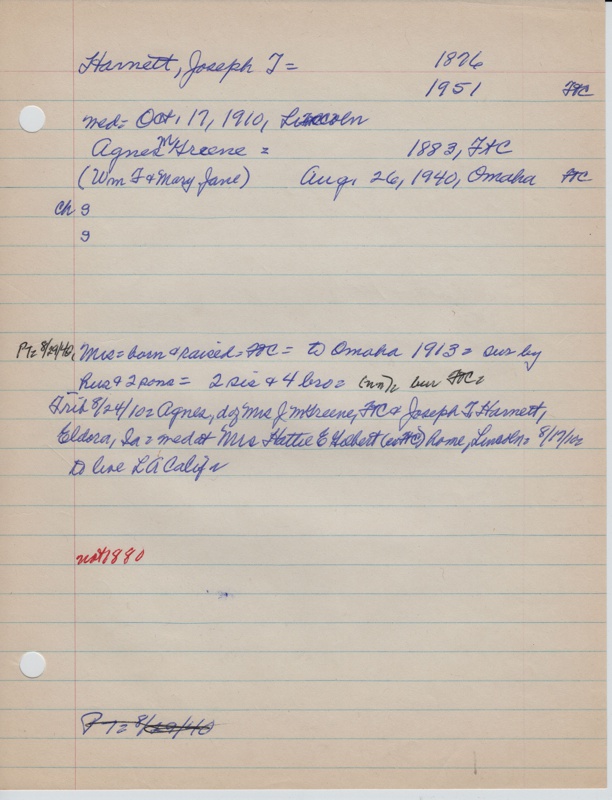 Harnett, Joseph T = 1876
1951 FtC
med= Oct. 17, 1910, Lincoln
Agnes M Greene = 1883, FtC
(Wm F & Mary Jane) Aug. 26, 1940, Omaha FtC
ch 9
9
PT= 8/29/40, Mrs= born & raised= FtC= to Omaha 1913= sur by
hus & 2 sons= 2 sis & 4 bro= (nn)= bur FtC=
Trib 8/24/10= Agnes, dg Mrs J M Greene, FtC & Joseph T. Harnett,
Eldora, Ia= med at Mrs Hattie E Holbert home, Lincoln= 8/17/10=
to live LA Calif
not 1880
PT= 8/29/40